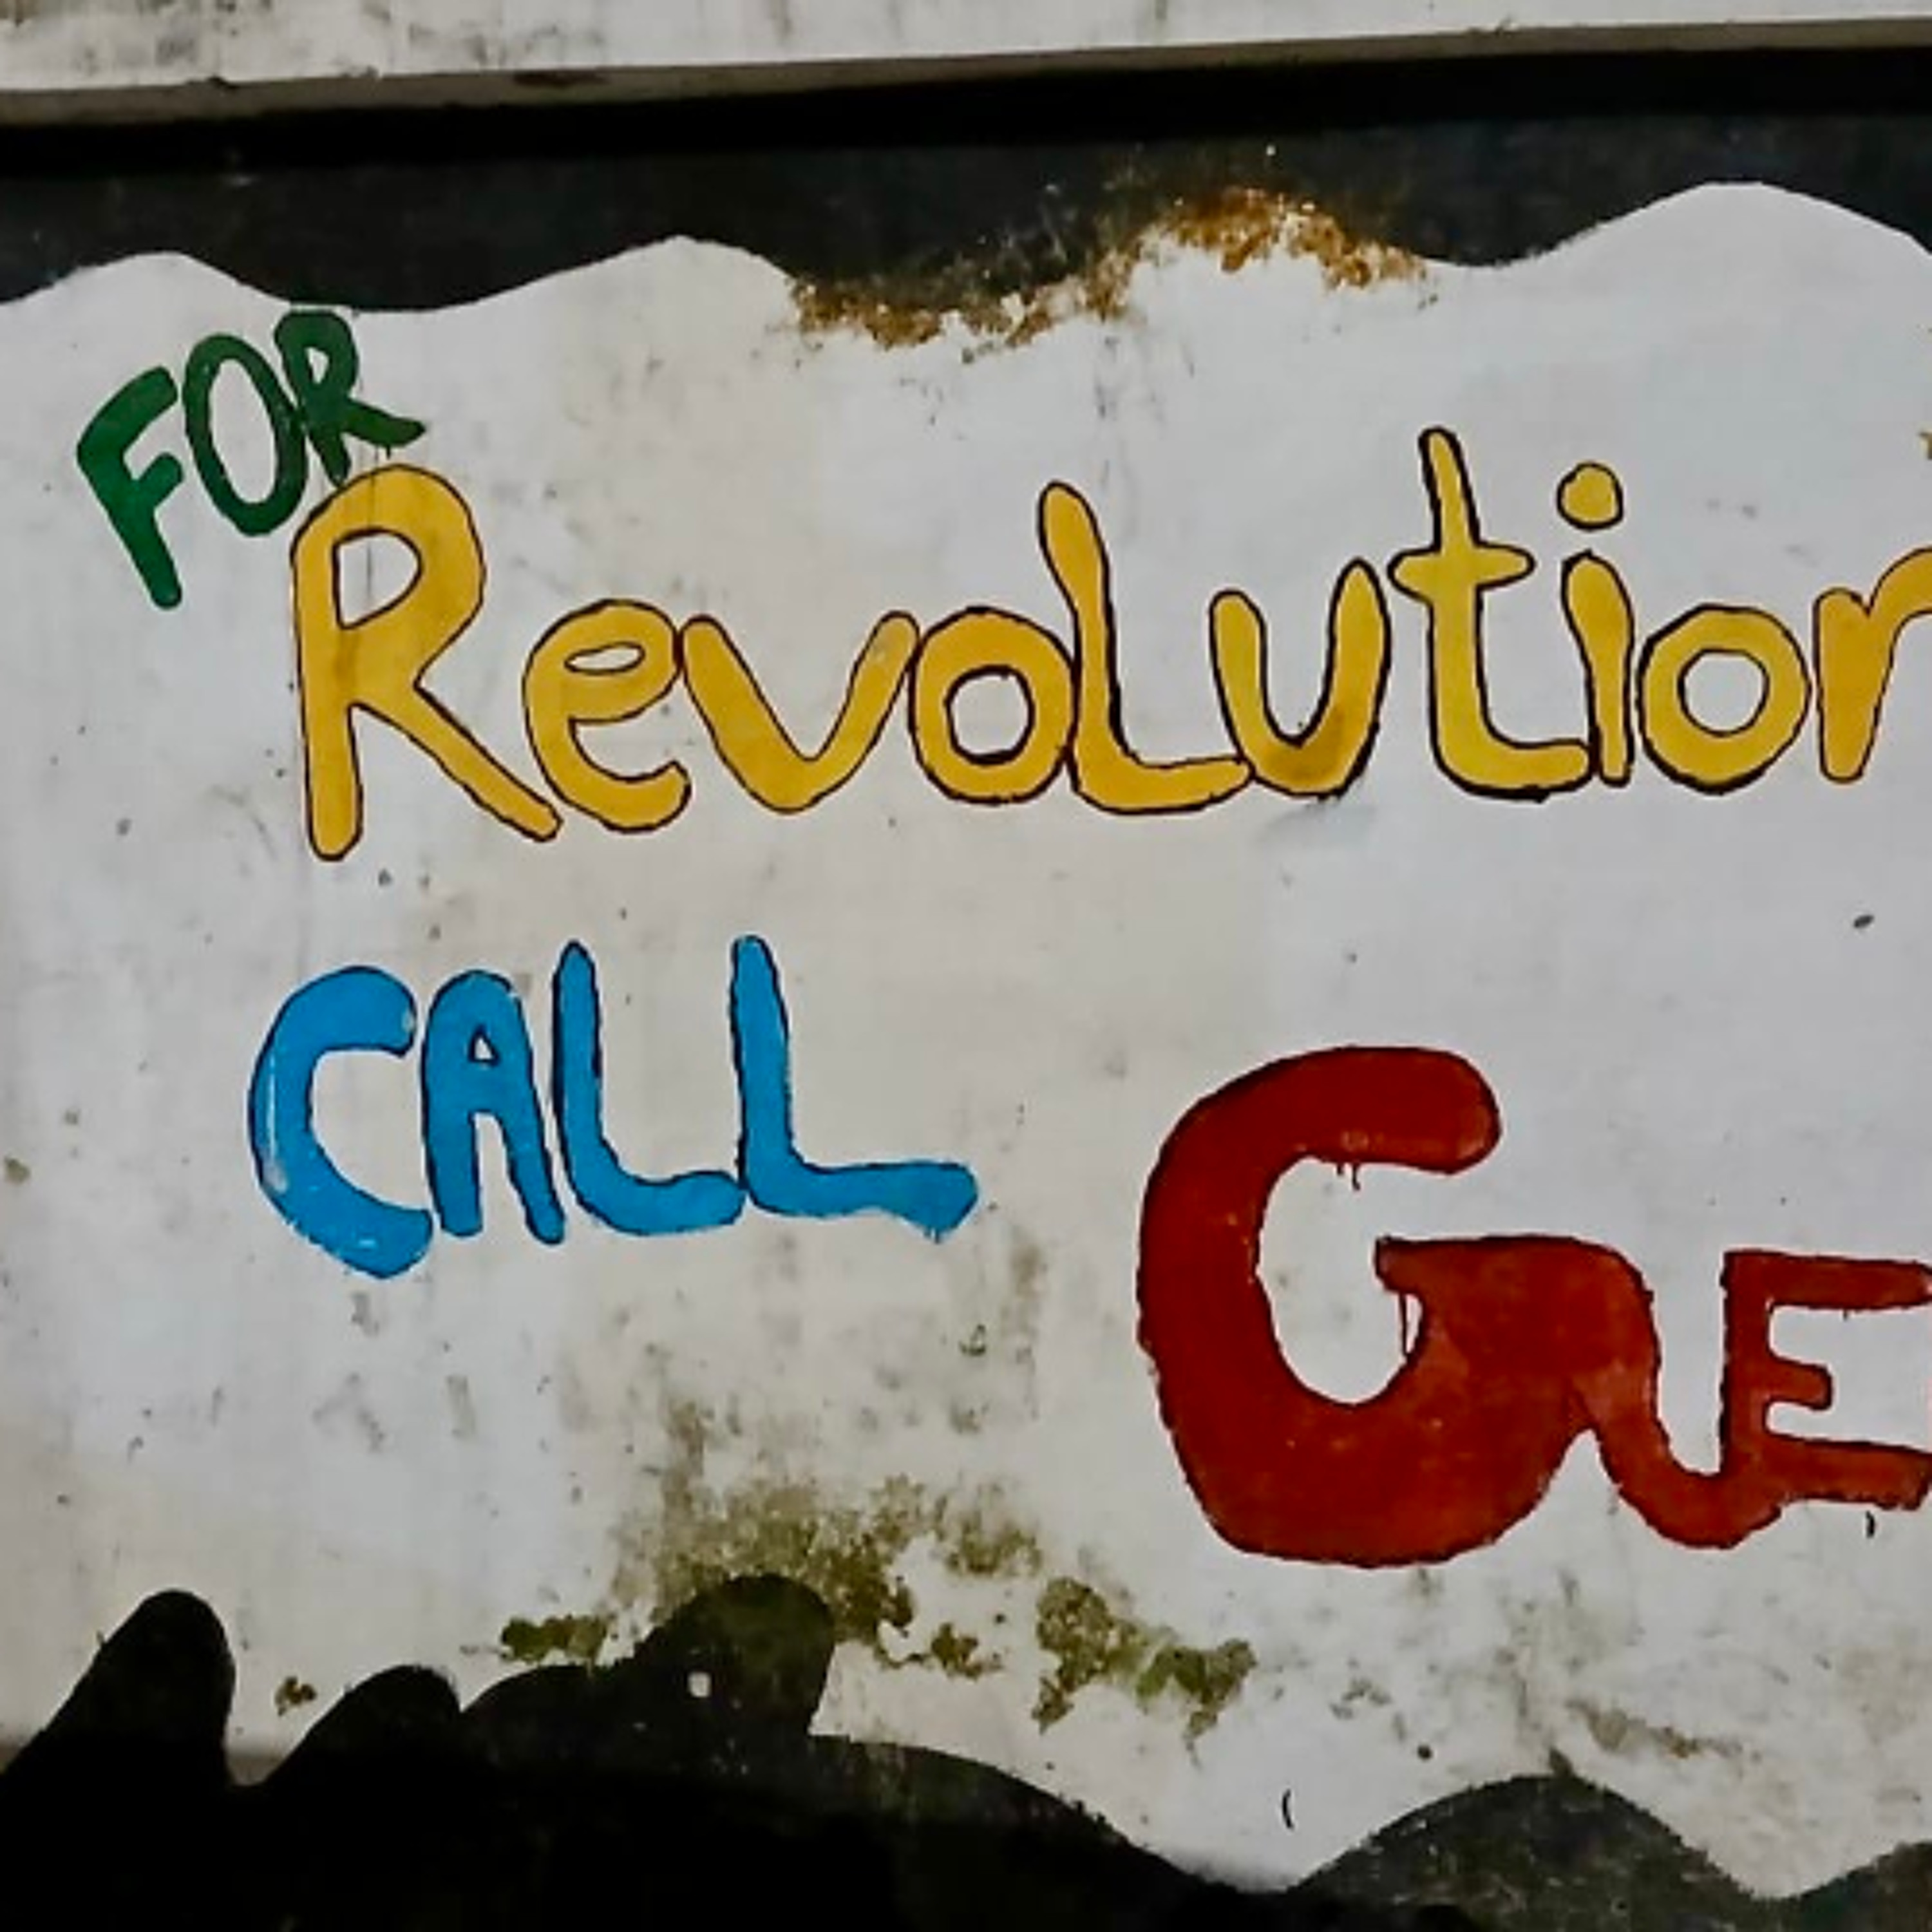 FOR
Revolution
CALL
GE